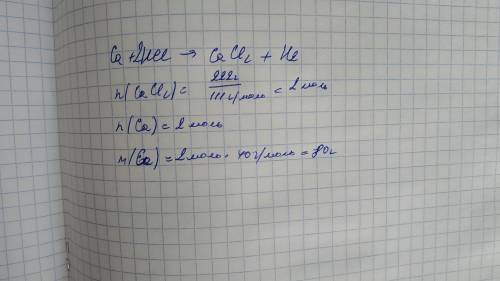 Ca + 2HCl → CaCl₂ + H₂
n(CaCl₂) = 222г / 111 г/моль = 2 моль
n(Ca) = 2 моль
m(Ca) = 2 моль · 40 г/моль = 80г